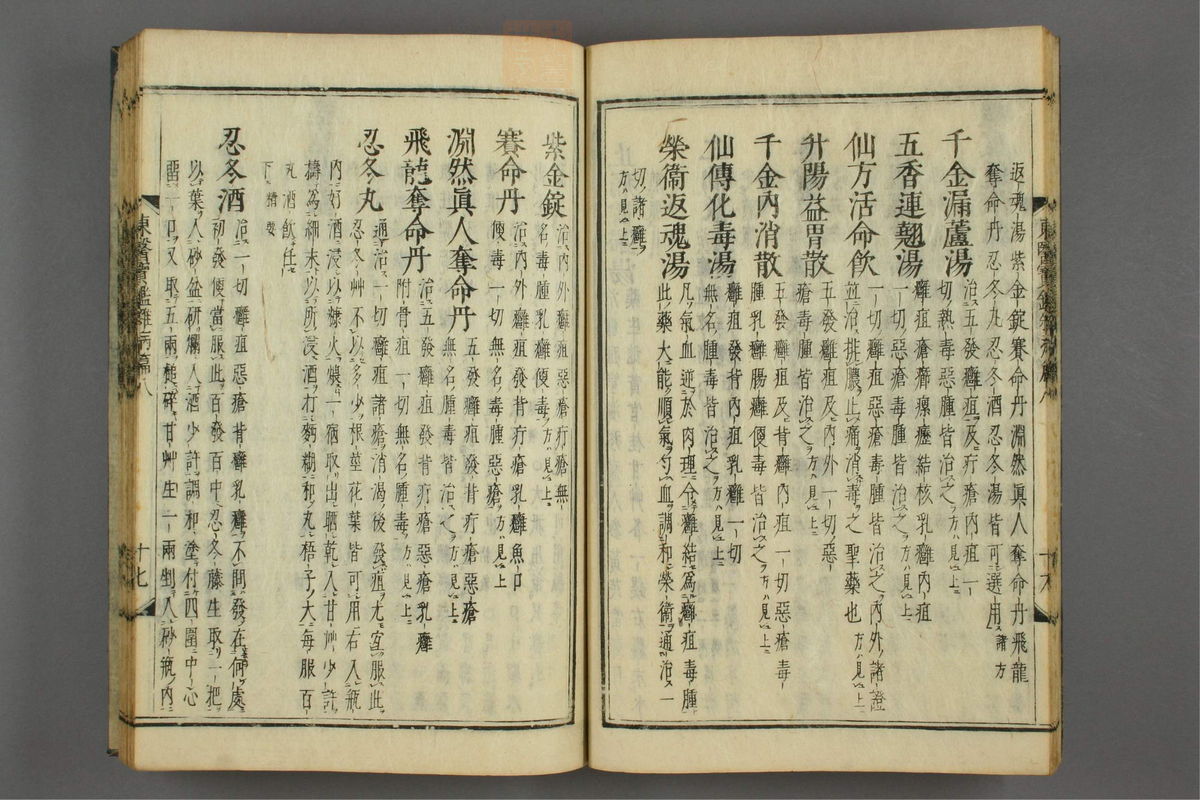 返魂湯紫金錠賽命丹淵然眞人奪命丹飛龍
奪命丹忍冬丸忍冬酒忍冬湯皆可選用諸方
千金漏蘆湯治五發癰疽及疔瘡內疽一
切熱毒腫皆治之方ハ見上ニ
五香連翹湯癰疽瘡癤瘰癧結核乳癰內疽
一切惡瘡毒腫皆治之方ハ見上ニ
仙方活命飮一切癰疽惡瘡毒腫皆治之內外諸證
並治排膿止痛消毒之聖藥也方ハ見上ニ
升陽益胃散五發癰疽及內外一切惡
瘡毒腫皆治之方ハ見上ニ
千金內消散五發及背癰內疽一切惡瘡毒
腫乳癰腸癰便毒皆治之方ハ見上ニ
仙傳化毒湯癰疽發背內疽乳癰一切
無名腫毒皆治之方ハ見上ニ
榮衞返魂湯凡氣血逆於肉理令癰結爲癰疽毒腫
此藥大能順氣勻血調和榮衞通治一
切諸癰方ハ見上ニ
紫金錠治內外癰疽惡瘡疔瘡無
名毒腫乳癰便毒方ハ見上ニ
賽命丹治內外癰疽發背疔瘡乳癰魚口
便毒一切無名毒腫惡瘡方ハ見上
淵然眞人奪命丹五發癰疽發背疔瘡惡瘡
無名腫毒皆治之方ハ見上ニ
飛龍奪命丹治五發癰疽發背疔瘡惡瘡乳癰
附骨疽一切無名腫毒方ハ見上ニ
忍冬丸通治一切癰疽諸瘡消渴後發疽尤宜服此
忍冬艸不以多少根莖花葉皆可用右入甁
內好酒浸以糠火煨一宿取出晒乾入甘艸少許
擣爲細末以所浸酒打麪糊和丸梧子大每服百
丸酒飮任下精要
忍冬酒治一切癰疽惡瘡背癰乳癰不問發在何處
初發便當服此百發百中忍冬藤生取一把
以葉入砂盆研爛入酒少許調和塗付四圍中心
留一口又取五兩槌碎甘艸生一兩剉入砂甁內
東醫寶鑑雜病篇八
十六
東醫寶鑑雜病篇八
十七